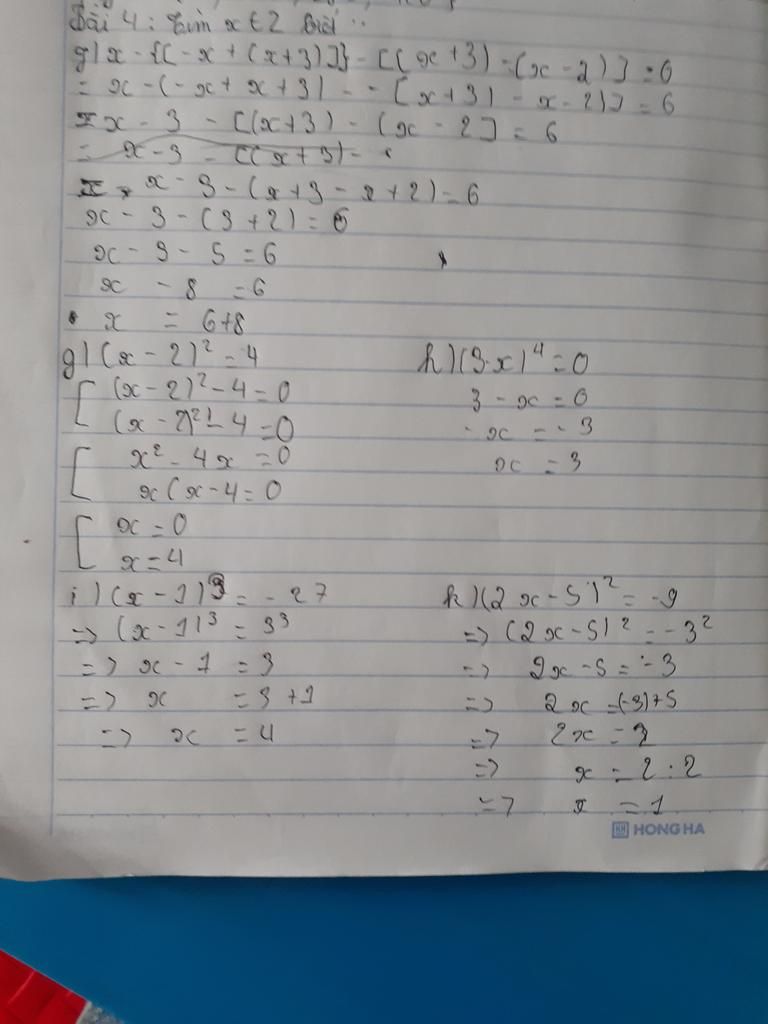 Bài 4: Tìm x ∈ Z biết:
g) x - {[-x + (x+3)]} - [(x+3) - (x-2)] = 6
= x - (-x + x + 3) - - [x+3) - x - 2)] = 6
= x - 3 - [(x+3) - (x - 2] = 6
= x - 3 - [(x+3) -
x - 3 - (x + 3 - x + 2) = 6
x - 3 - (3 + 2) = 6
x - 3 - 5 = 6
x - 8 = 6
x = 6+8
g) (x - 2)² = 4
[ (x - 2)² - 4 = 0
(x - 2)² - 4 = 0
[ x² - 4x = 0
x(x - 4 = 0
[ x = 0
x = 4
h) (3-x)⁴ = 0
3 - x = 0
- x = - 3
x = 3
i) (x - 1)³ = - 27
=> (x - 1)³ = 3³
=> x - 1 = 3
=> x = 3 + 1
=> x = 4
k) (2x - 5)² = -9
=> (2x - 5)² = -3²
=> 2x - 5 = -3
=> 2x = (-3)+5
=> 2x = 2
=> x = 2 : 2
=> x = 1
HONG HA